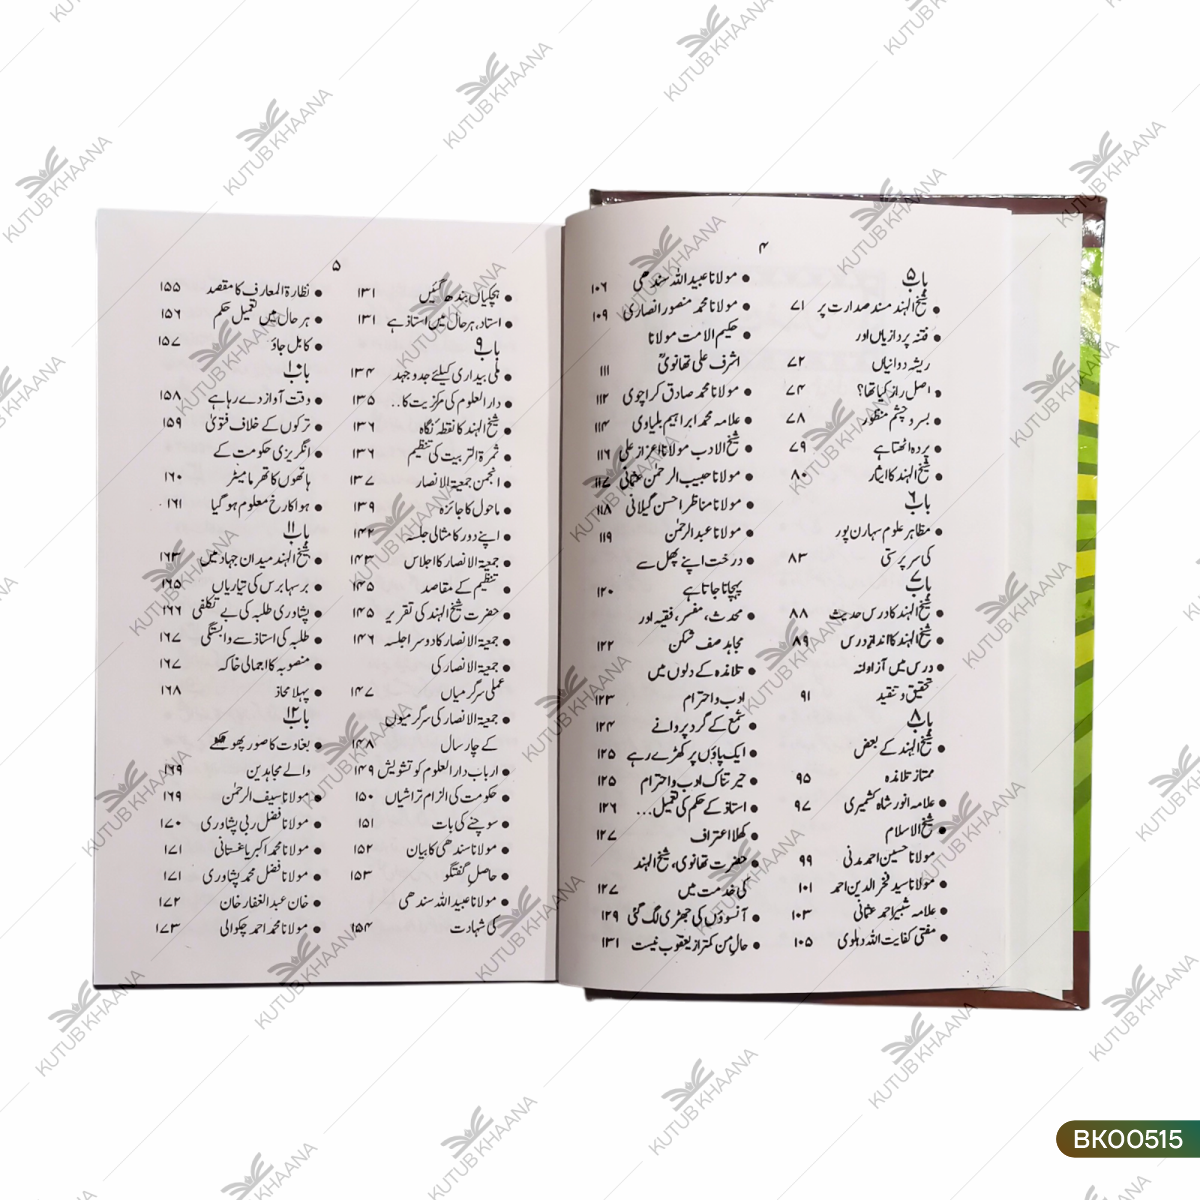 ۴
باب ۵
• شیخ الہند مسند صدارت پر ۷۱
• فتنہ پردازیاں اور
ریشہ دوانیاں ۷۲
• اصل راز کیا تھا؟ ۷۴
• بسر و چشم منظور ۷۸
• پردہ اٹھتا ہے ۷۹
• شیخ الہند کا ایثار ۸۰
باب ۶
• مظاہر علوم سہارن پور
کی سرپرستی ۸۳
باب ۷
• شیخ الہند کا درس حدیث ۸۸
• شیخ الہند کا انداز درس ۸۹
• درس میں آزادانہ
تحقیق و تنقید ۹۱
باب ۸
• شیخ الہند کے بعض
ممتاز تلامذہ ۹۵
• علامہ انور شاہ کشمیری ۹۷
• شیخ الاسلام
مولانا حسین احمد مدنی ۹۹
• مولانا سید فخر الدین احمد ۱۰۱
• علامہ شبیر احمد عثمانی ۱۰۳
• مفتی کفایت اللہ دہلوی ۱۰۵
• مولانا عبید اللہ سندھی ۱۰۶
• مولانا محمد منصور انصاری ۱۰۹
• حکیم الامت مولانا
اشرف علی تھانویؒ ۱۱۱
• مولانا محمد صادق کراچوی ۱۱۲
• علامہ محمد ابراہیم بلیاوی ۱۱۴
• شیخ الادب مولانا اعزاز علی ۱۱۶
• مولانا حبیب الرحمن عثمانی ۱۱۷
• مولانا مناظر احسن گیلانی ۱۱۸
• مولانا عبد الرحمن ۱۱۹
• درخت اپنے پھل سے
پہچانا جاتا ہے ۱۲۰
• محدث، مفسر، فقیہ اور
مجاہد صف شکن ۱۲۲
• تلامذہ کے دلوں میں
ادب و احترام ۱۲۳
• شمع کے گرد پروانے ۱۲۴
• ایک پاؤں پر کھڑے رہے ۱۲۵
• حیرتناک ادب و احترام ۱۲۵
• استاذ کے حکم کی تعمیل... ۱۲۶
• کھلا اعتراف ۱۲۷
• حضرت تھانوی، شیخ الہند
کی خدمت میں ۱۲۷
• آنسوؤں کی جھڑی لگ گئی ۱۲۹
• حال من کمتر از یعقوب نیست ۱۳۱
۵
• ہچکیاں بندھ گئیں ۱۳۱
• استاد، ہر حال میں استاذ ہے ۱۳۱
باب ۹
• ملی بیداری کیلئے جدوجہد ۱۳۴
• دار العلوم کی مرکزیت کا.. ۱۳۵
• شیخ الہند کا نقطۂ نگاہ ۱۳۶
• ثمرۃ التربیت کی تنظیم ۱۳۶
• انجمن جمعیۃ الانصار ۱۳۷
• ماحول کا جائزہ ۱۳۹
• اپنے دور کا مثالی جلسہ ۱۴۲
• جمعیۃ الانصار کا اجلاس ۱۴۳
• تنظیم کے مقاصد ۱۴۵
• حضرت شیخ الہند کی تقریر ۱۴۵
• جمعیۃ الانصار کا دوسرا جلسہ ۱۴۶
• جمعیۃ الانصار کی
عملی سرگرمیاں ۱۴۷
• جمعیۃ الانصار کی سرگرمیوں
کے چار سال ۱۴۸
• ارباب دار العلوم کو تشویش ۱۴۹
• حکومت کی الزام تراشیاں ۱۵۰
• سوچنے کی بات ۱۵۱
• مولانا سندھی کا بیان ۱۵۲
• حاصل گفتگو ۱۵۳
• مولانا عبید اللہ سندھی
کی شہادت ۱۵۴
• نظارۃ المعارف کا مقصد ۱۵۵
• ہر حال میں تعمیل حکم ۱۵۶
• کابل جاؤ ۱۵۷
باب ۱۰
• وقت آواز دے رہا ہے ۱۵۸
• ترکوں کے خلاف فتویٰ ۱۵۹
• انگریزی حکومت کے
ہاتھوں کا تھرمامیٹر ۱۶۰
• ہوا کا رخ معلوم ہو گیا ۱۶۱
باب ۱۱
• شیخ الہند میدان جہاد میں ۱۶۳
• برسہا برس کی تیاریاں ۱۶۵
• پشاوری طلبہ کی بے تکلفی ۱۶۶
• طلبہ کی استاذ سے وابستگی ۱۶۷
• منصوبہ کا اجمالی خاکہ ۱۶۷
• پہلا محاذ ۱۶۸
باب ۱۲
• بغاوت کا صور پھونکنے
والے مجاہدین ۱۶۹
• مولانا سیف الرحمٰن ۱۶۹
• مولانا فضل ربی پشاوری ۱۷۰
• مولانا محمد اکبر یاغستانی ۱۷۱
• مولانا فضل محمد پشاوری ۱۷۱
• خان عبد الغفار خان ۱۷۲
• مولانا محمد احمد چکوالی ۱۷۳
KUTUB KHAANA
BK00515